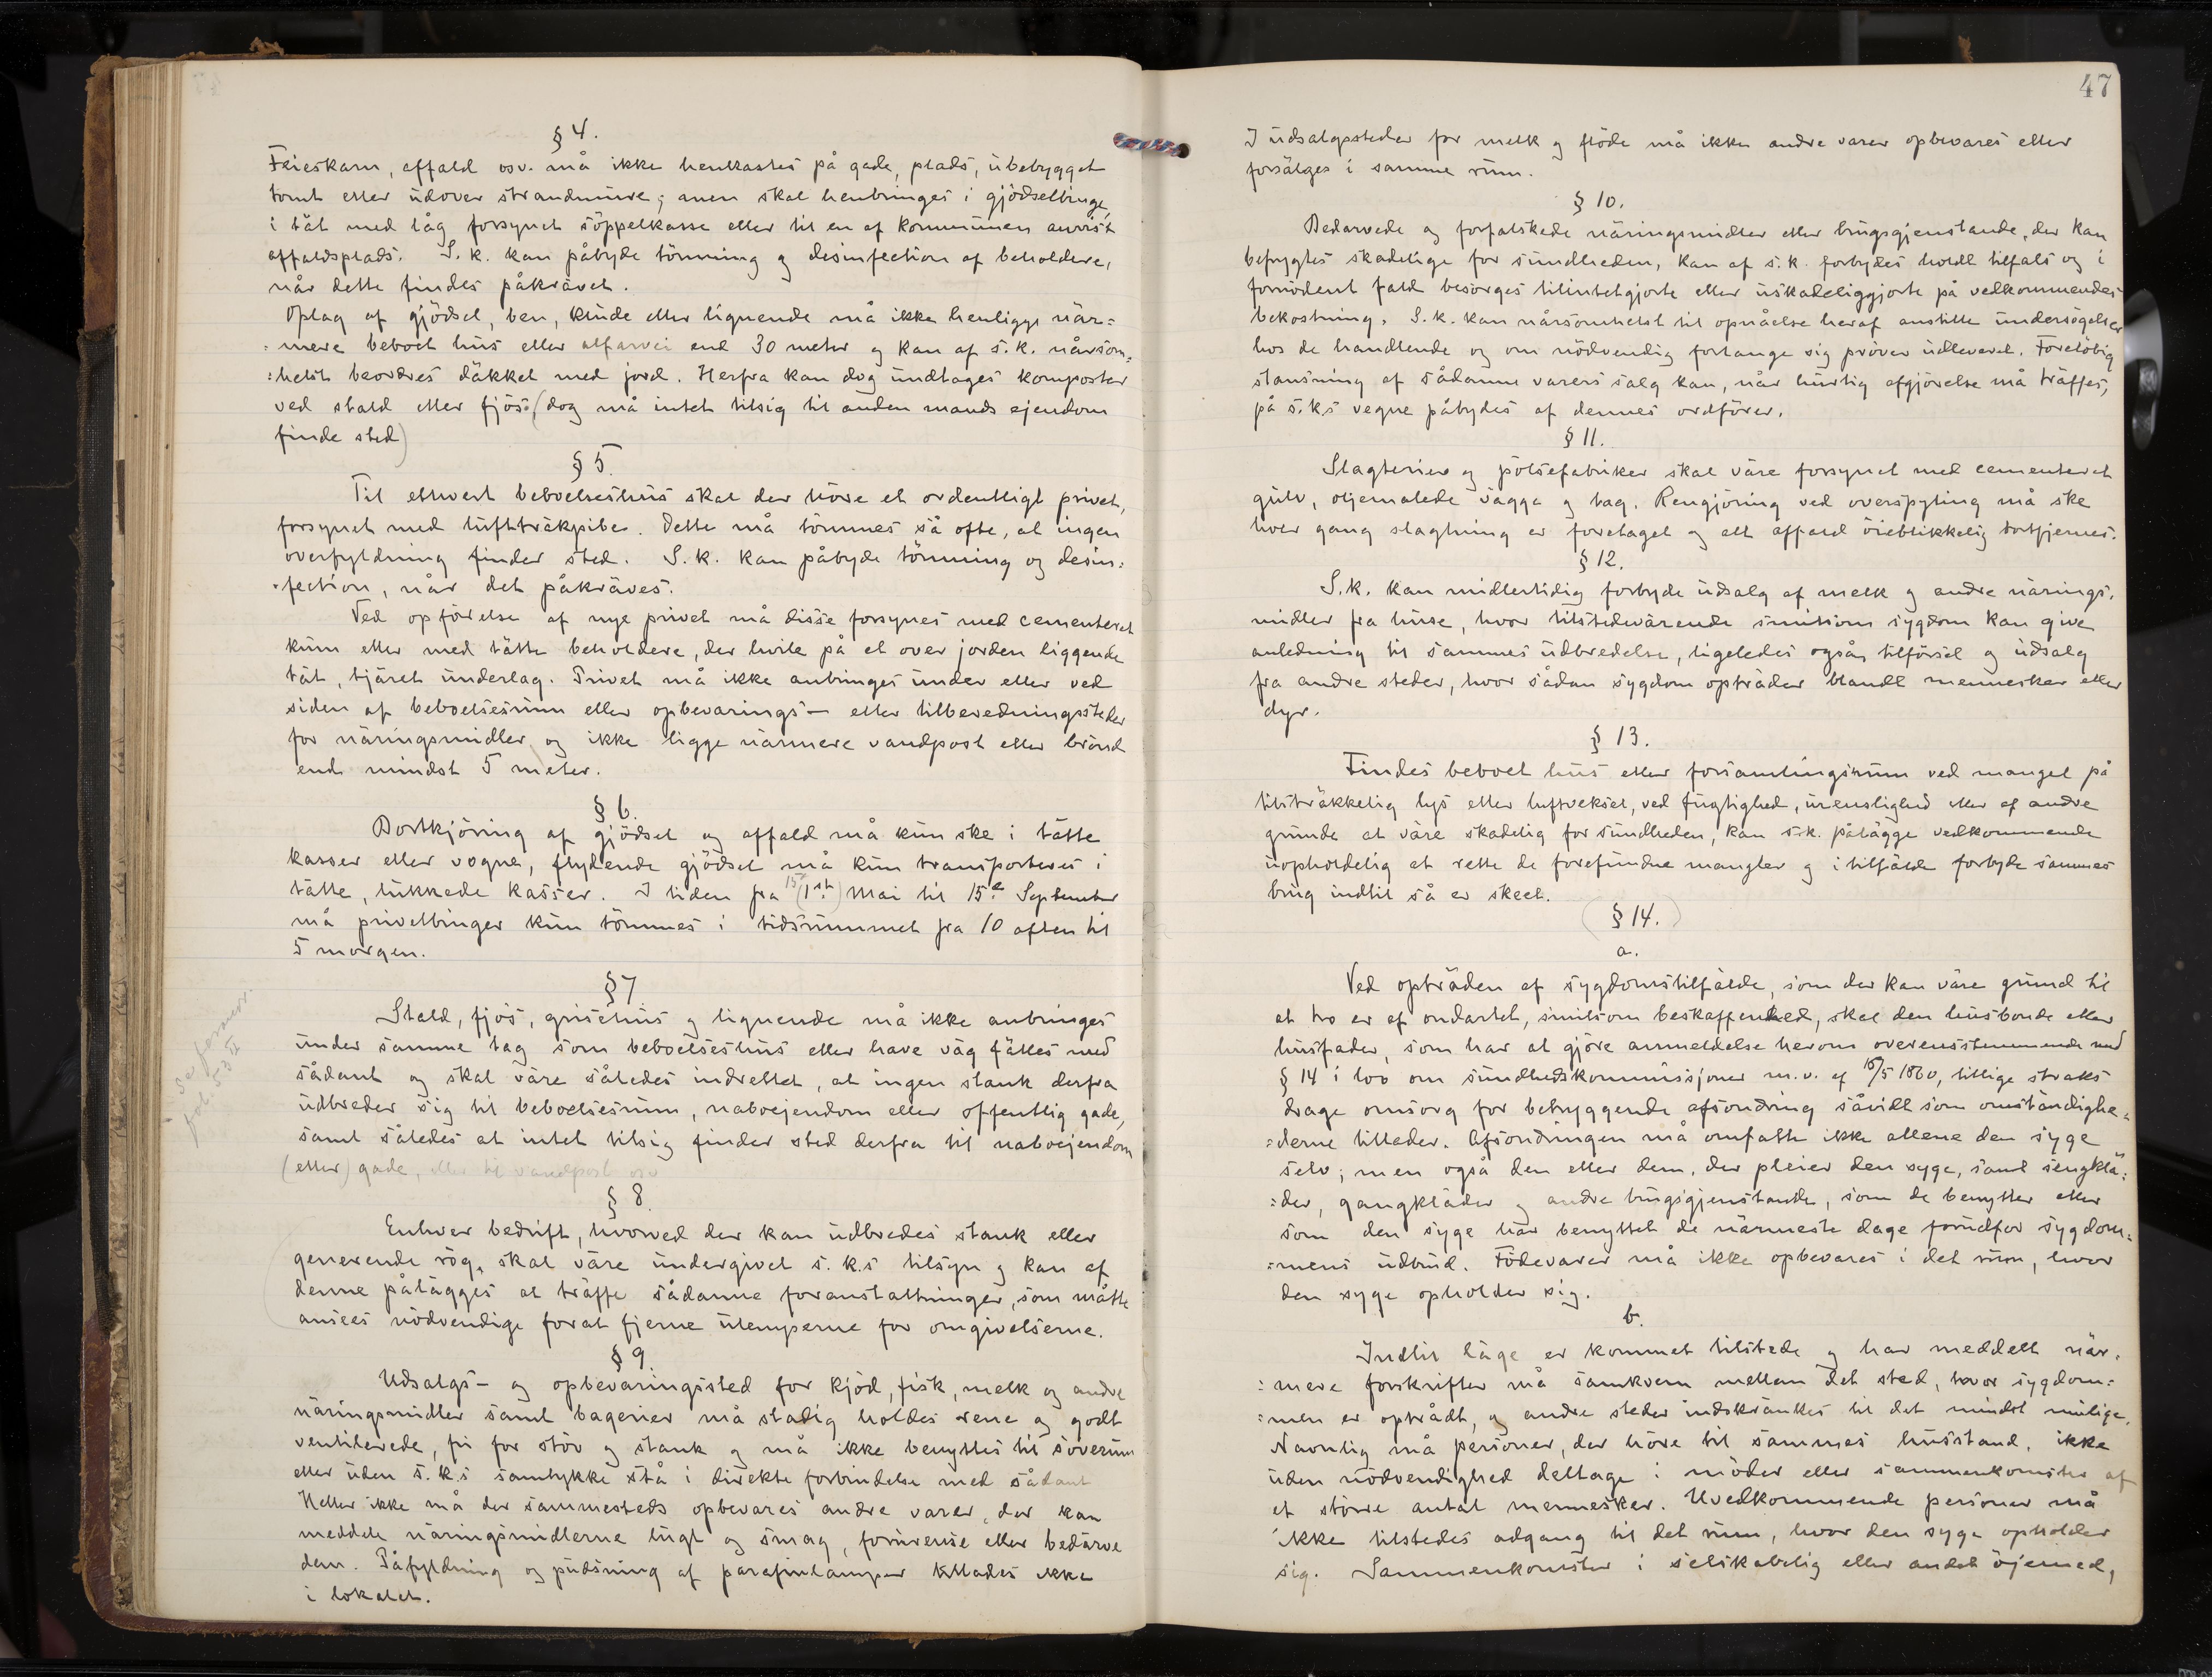 § 4.
Feieskarn, affald osv. må ikke henkastes på gade, plads, ubebygget
tomt eller udover strandmure; men skal henbringes i gjödselbinge,
i tät med låg forsynet söppelkasse eller til en af kommunen anvist
affaldsplads. S. k. kan påbyde tömning og desinfection af beholdere,
når dette findes påkrävet.
Oplag af gjödsel, ben, klude eller lignende må ikke henligge när=
=mere beboet hus eller alfarvei end 30 meter og kan af s. k. nårsom=
=helst beordres däkket med jord. Herfra kan dog undtages komposter
ved stald eller fjös (dog må intet tilsig til anden mands ejendom
finde sted)
§ 5.
Til ethvert beboelseshus skal der höre et ordentligt privet,
forsynet med lufttrækpibe. Dette må tömmes så ofte, at ingen
overfyldning finder sted. S. k. kan påbyde tömning og desin=
=fection, når det påkräves.
Ved opförelse af nye privet må disse forsynes med cementeret
kum eller med tätte beholdere, der hvile på et over jorden liggende
tät, tjäret underlag. Privet må ikke anbringes under eller ved
siden af beboelsesrum eller opbevarings- eller tilberedningssteder
for näringsmidler og ikke ligge närmere vandpost eller brönd
end mindst 5 meter.
§ 6.
Bortkjöring af gjödsel og affald må kun ske i tätte
kasser eller vogne, flydende gjödsel må kun transporteres i
tätte, lukkede kasser. I tiden fra 15de (1ste) Mai til 15de September
må privetbinger kun tömmes i tidsrummet fra 10 aften til
5 morgen.
§ 7
Stald, fjös, grisehus og lignende må ikke anbringes
under samme tag som beboelseshus eller have väg fälles med
sådant og skal väre således indrettet, at ingen stank derfra
udbreder sig til beboelsesrum, naboejendom eller offentlig gade,
samt således at intet tilsig finder sted derfra til naboejendom
(eller) gade, eller til vandpost osv
se forner.
fol. 53 II
§ 8.
Enhver bedrift, hvorved der kan udbredes stank eller
generende rög, skal väre undergivet s. k.s tilsyn og kan af
denne pålägges at träffe sådanne foranstaltninger, som måtte
ansees nödvendige forat fjerne ulemperne for omgivelserne.
§ 9.
Udsalgs- og opbevaringssted for kjöd, fisk, melk og andre
näringsmidler samt bagerier må stadig holdes rene og godt
ventilerede, fri for stöv og stank og må ikke benyttes til soverum
eller uden s. k.s samtykke stå i direkte forbindelse med sådant
Heller ikke må der sammesteds opbevares andre varer, der kan
meddele näringsmidlerne lugt og smag, forurense eller bedärve
dem. Påfyldning og pudsning af parafinlamper tillades ikke
i lokalet.
47
I udsalgssteder for melk og flöde må ikke andre varer opbevares eller
forsälges i samme rum.
§ 10.
Bedärvede og forfalskede näringsmidler eller brugsgjenstande, der kan
befrygtes skadelige for sundheden, kan af s. k. forbydes holdt tilfals og i
fornödent fald besörges tilintetgjorte eller uskadeliggjorte på vedkommendes
bekostning. S. k. kan nårsomhelst til opnåelse heraf anstille undersögelser
hos de handlende og om nödvendig forlange sig pröver udleveret. Forelöbig
standsning af sådanne varers salg kan, når hurtig afgjörelse må träffes,
på s. k.s vegne påbydes af dennes ordförer.
§ 11.
Slagterier og pölsefabriker skal väre forsynet med cementeret
gulv, oljemalede vägge og tag. Rengjöring ved overspyling må ske
hver gang slagtning er foretaget og alt affald öieblikkelig bortfjernes.
§ 12.
S. k. kan midlertidig forbyde udsalg af melk og andre närings=
midler fra huse, hvor tilstedevärende smitsom sygdom kan give
anledning til sammes udbredelse, ligeledes også tilförsel og udsalg
fra andre steder, hvor sådan sygdom opträder blandt mennesker eller
dyr.
§ 13.
Findes beboet hus eller forsamlingsrum ved mangel på
tilsträkkelig lys eller luftveksel, ved fugtighed, urenslighed eller af andre
grunde at väre skadelig for sundheden, kan s. k. pålägge vedkommende
uopholdelig at rette de forefundne mangler og i tilfälde forbyde sammes
brug indtil så er skeet.
(§ 14.)
a.
Ved opträden af sygdomstilfälde, som der kan väre grund til
at tro er af ondartet, smitsom beskaffenhed, skal den husbonde eller
husfader, som har at gjöre anmeldelse herom overensstemmende med
§ 14 i lov om sundhedskommissjoner m. v. af 16/5 1860, tillige straks
drage omsorg for betryggende afsondring såvidt som omständighe=
=derne tillader. Afsondringen må omfatte ikke allene den syge
selv; men også den eller dem, der pleier den syge, samt sengklä=
=der, gangkläder og andre brugsgjenstande, som de benytter eller
som den syge har benyttet de närmeste dage forudfor sygdom=
=mens udbrud. Födevarer må ikke opbevares i det rum, hvor
den syge opholder sig.
b.
Indtil läge er kommet tilstede og har meddelt när=
=mere forskrifter må samkvem mellem det sted, hvor sygdom=
=men er opträdt, og andre steder indskränkes til det mindst mulige.
Navnlig må personer, der höre til sammes husstand, ikke
uden nödvendighed deltage i möder eller sammenkomster af
et större antal mennesker. Uvedkommende personer må
ikke tilstedes adgang til det rum, hvor den syge opholder
sig. Sammenkomster i selskabelig eller andet öjemed,